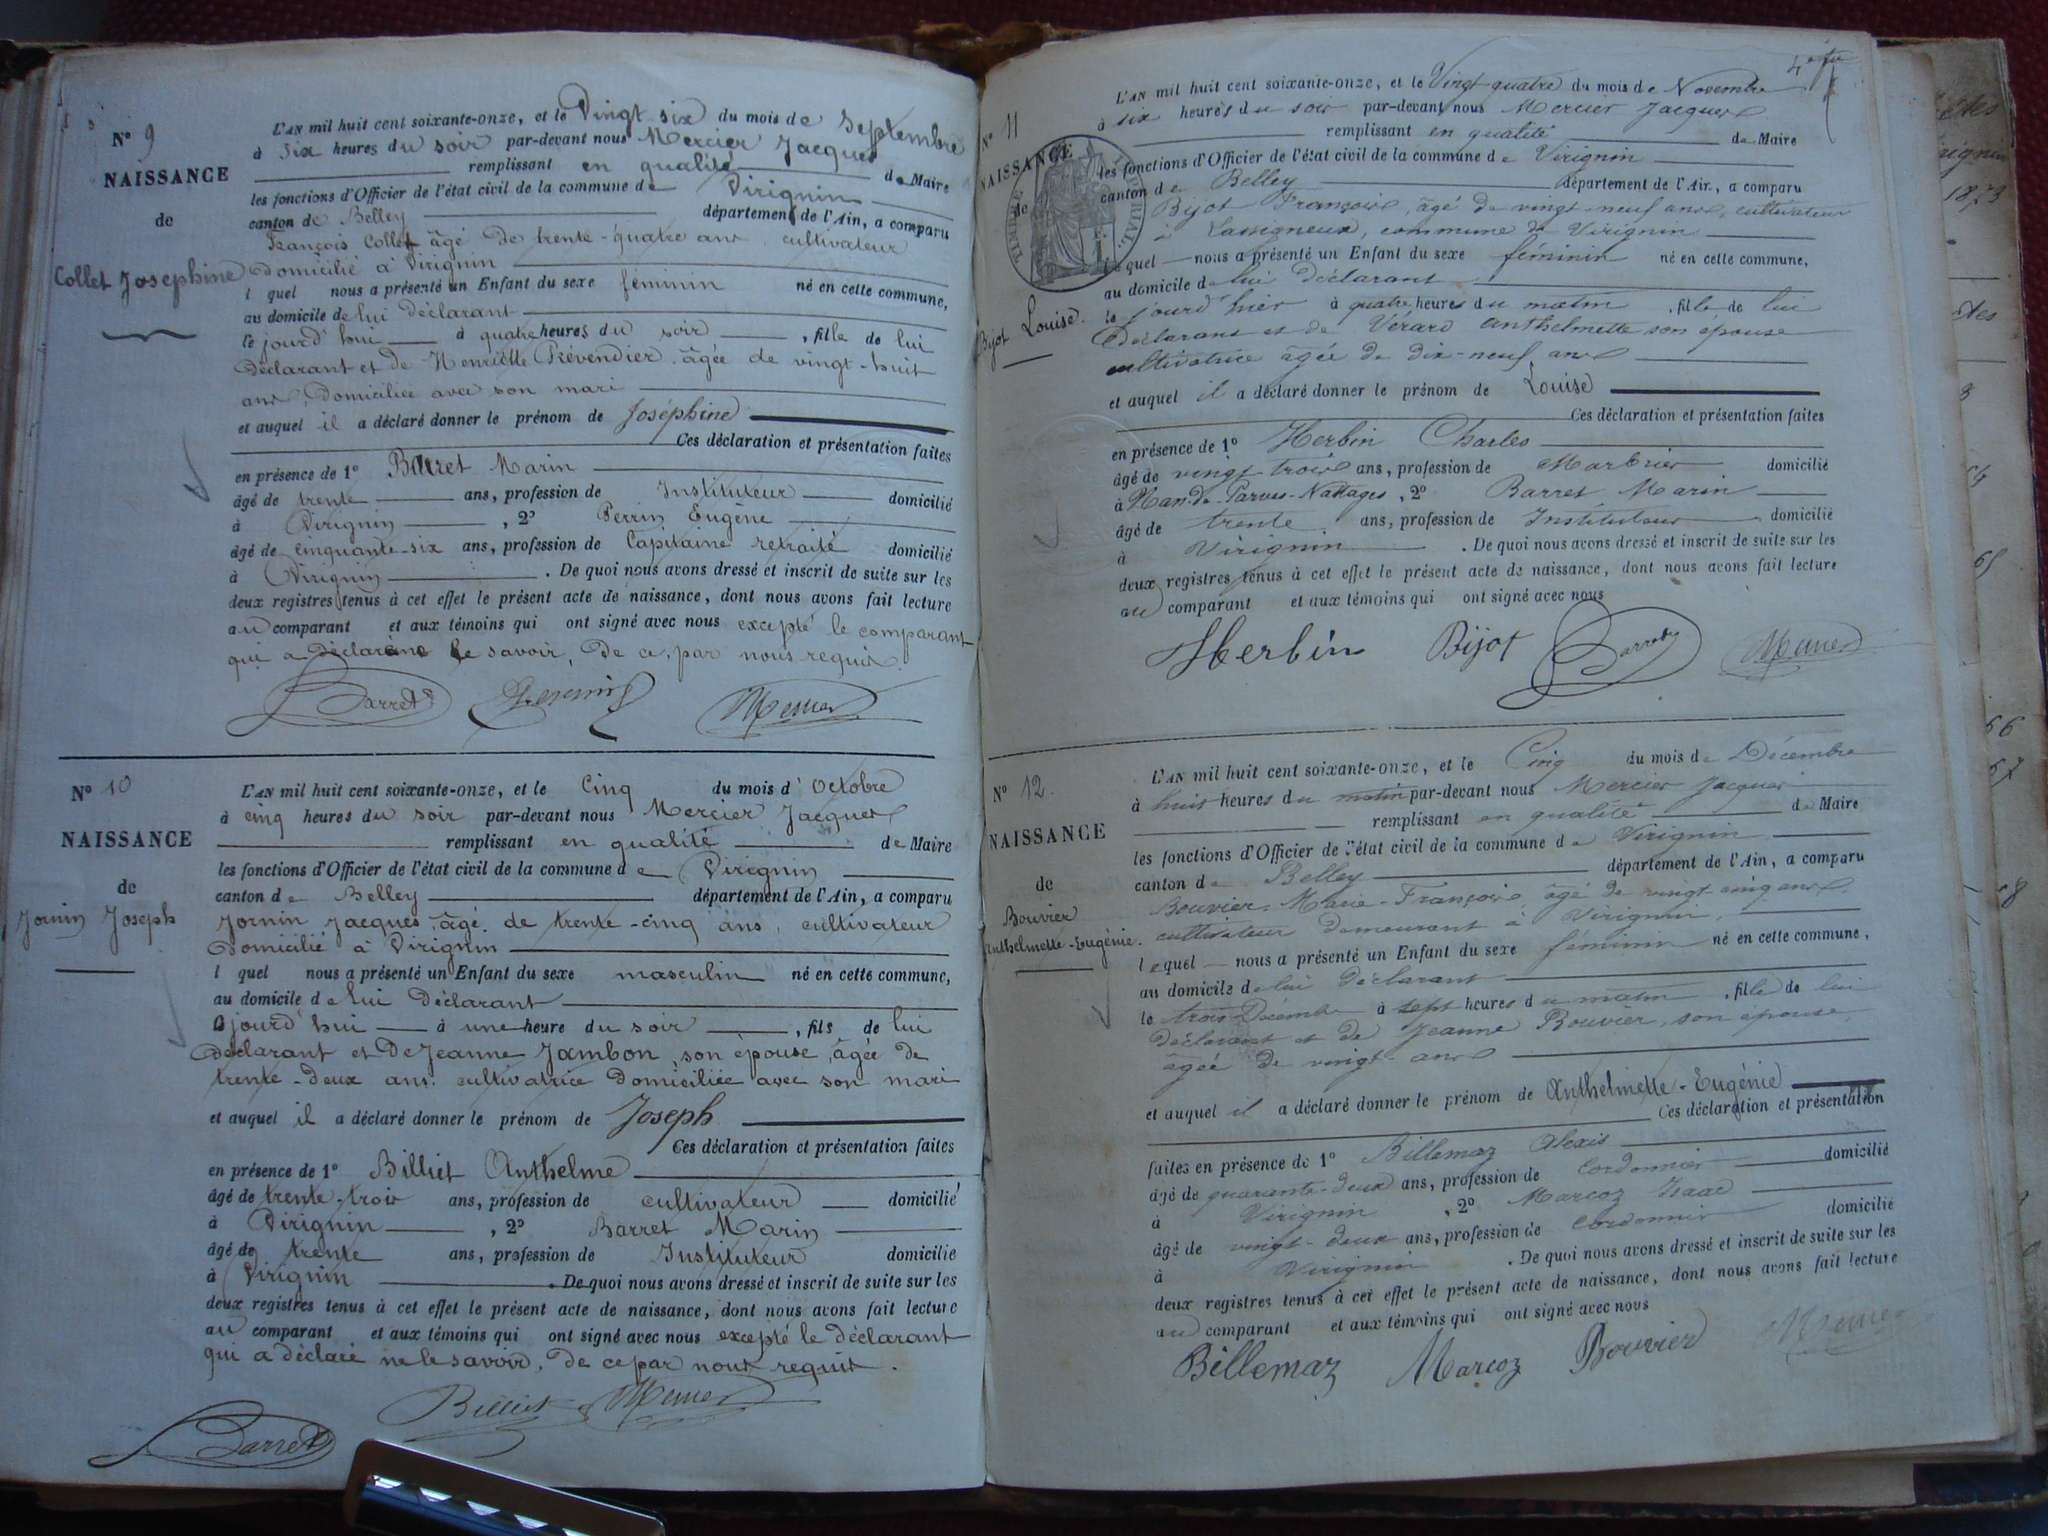 N° 9
NAISSANCE
de
Collet Joséphine
L'AN mil huit cent soixante-onze, et le Vingt six du mois de Septembre
à six heures du soir par-devant nous Mercier Jacques
remplissant en qualité de Maire
les fonctions d'Officier de l'état civil de la commune de Virignin
canton de Belley département de l'Ain, a comparu
François Collet âgé de trente-quatre ans cultivateur
domicilié à Virignin
l quel nous a présenté un Enfant du sexe féminin né en cette commune,
au domicile de lui déclarant
le jourd'hui à quatre heures du soir, fille de lui
déclarant et de Henriette Prévendier âgée de vingt-huit
ans, domiciliée avec son mari
et auquel il a déclaré donner le prénom de Joséphine
Ces déclaration et présentation faites
en présence de 1° Barret Marin
âgé de trente ans, profession de Instituteur domicilié
à Virignin, 2° Perrin Eugène
âgé de cinquante-six ans, profession de Capitaine retraité domicilié
à Virignin. De quoi nous avons dressé et inscrit de suite sur les
deux registres tenus à cet effet le présent acte de naissance, dont nous avons fait lecture
au comparant et aux témoins qui ont signé avec nous excepté le comparant
qui a déclaré ne le savoir, de ce, par nous requis.
Barret Mercier
N° 10
NAISSANCE
de
Jornin Joseph
L'AN mil huit cent soixante-onze, et le Cinq du mois d'Octobre
à cinq heures du soir par-devant nous Mercier Jacques
remplissant en qualité de Maire
les fonctions d'Officier de l'état civil de la commune de Virignin
canton de Belley département de l'Ain, a comparu
Jornin Jacques, âgé de trente-cinq ans, cultivateur
domicilié à Virignin
l quel nous a présenté un Enfant du sexe masculin né en cette commune,
au domicile de lui déclarant
jourd'hui à une heure du soir, fils de lui
déclarant et de Jeanne Jambon, son épouse, âgée de
trente-deux ans. cultivatrice domiciliée avec son mari
et auquel il a déclaré donner le prénom de Joseph
Ces déclaration et présentation faites
en présence de 1° Billiet Anthelme
âgé de trente-trois ans, profession de cultivateur domicilié
à Virignin, 2° Barret Marin
âgé de trente ans, profession de Instituteur domicilié
à Virignin. De quoi nous avons dressé et inscrit de suite sur les
deux registres tenus à cet effet le présent acte de naissance, dont nous avons fait lecture
au comparant et aux témoins qui ont signé avec nous excepté le déclarant
qui a déclaré ne le savoir, de ce par nous requis.
Billiet Mercier
Barret
N° 11
NAISSANCE
de
Bijot Louise.
TIMBRE IMPÉRIAL
L'AN mil huit cent soixante-onze, et le Vingt quatre du mois de Novembre
à six heures du soir par-devant nous Mercier Jacques
remplissant en qualité de Maire
les fonctions d'Officier de l'état civil de la commune de Virignin
canton de Belley département de l'Ain, a comparu
Bijot François, âgé de vingt neuf ans, cultivateur
à Lassigneux, commune de Virignin
lequel nous a présenté un Enfant du sexe féminin né en cette commune,
au domicile de lui déclarant
le jourd'hier à quatre heures du matin, fille de lui
déclarant et de Vérard Anthelmette son épouse
cultivatrice âgée de dix-neuf ans
et auquel il a déclaré donner le prénom de Louise
Ces déclaration et présentation faites
en présence de 1° Herbin Charles
âgé de vingt-trois ans, profession de Marbrier domicilié
à Nant-de-Parves-Nattages, 2° Barret Marin
âgé de trente ans, profession de Instituteur domicilié
à Virignin. De quoi nous avons dressé et inscrit de suite sur les
deux registres tenus à cet effet le présent acte de naissance, dont nous avons fait lecture
au comparant et aux témoins qui ont signé avec nous
Herbin Bijot Barret Mercier
N° 12.
NAISSANCE
de
Bouvier
Anthelmette-Eugénie.
L'AN mil huit cent soixante-onze, et le Cinq du mois de Décembre
à huit heures du matin par-devant nous Mercier Jacques
remplissant en qualité de Maire
les fonctions d'Officier de l'état civil de la commune de Virignin
canton de Belley département de l'Ain, a comparu
Bouvier Marie-François, âgé de vingt-cinq ans,
cultivateur demeurant à Virignin,
lequel nous a présenté un Enfant du sexe féminin né en cette commune,
au domicile de lui déclarant
le trois Décembre à sept heures du matin, fille de lui
déclarant et de Jeanne Bouvier, son épouse,
âgée de vingt-ans
et auquel il a déclaré donner le prénom de Anthelmette-Eugénie
Ces déclaration et présentation
faites en présence de 1° Billemaz Alexis
âgé de quarante-deux ans, profession de Cordonnier domicilié
à Virignin, 2° Marcoz Isaac
âgé de vingt-deux ans, profession de Cordonnier domicilié
à Virignin. De quoi nous avons dressé et inscrit de suite sur les
deux registres tenus à cet effet le présent acte de naissance, dont nous avons fait lecture
au comparant et aux témoins qui ont signé avec nous
Billemaz Marcoz Bouvier Mercier